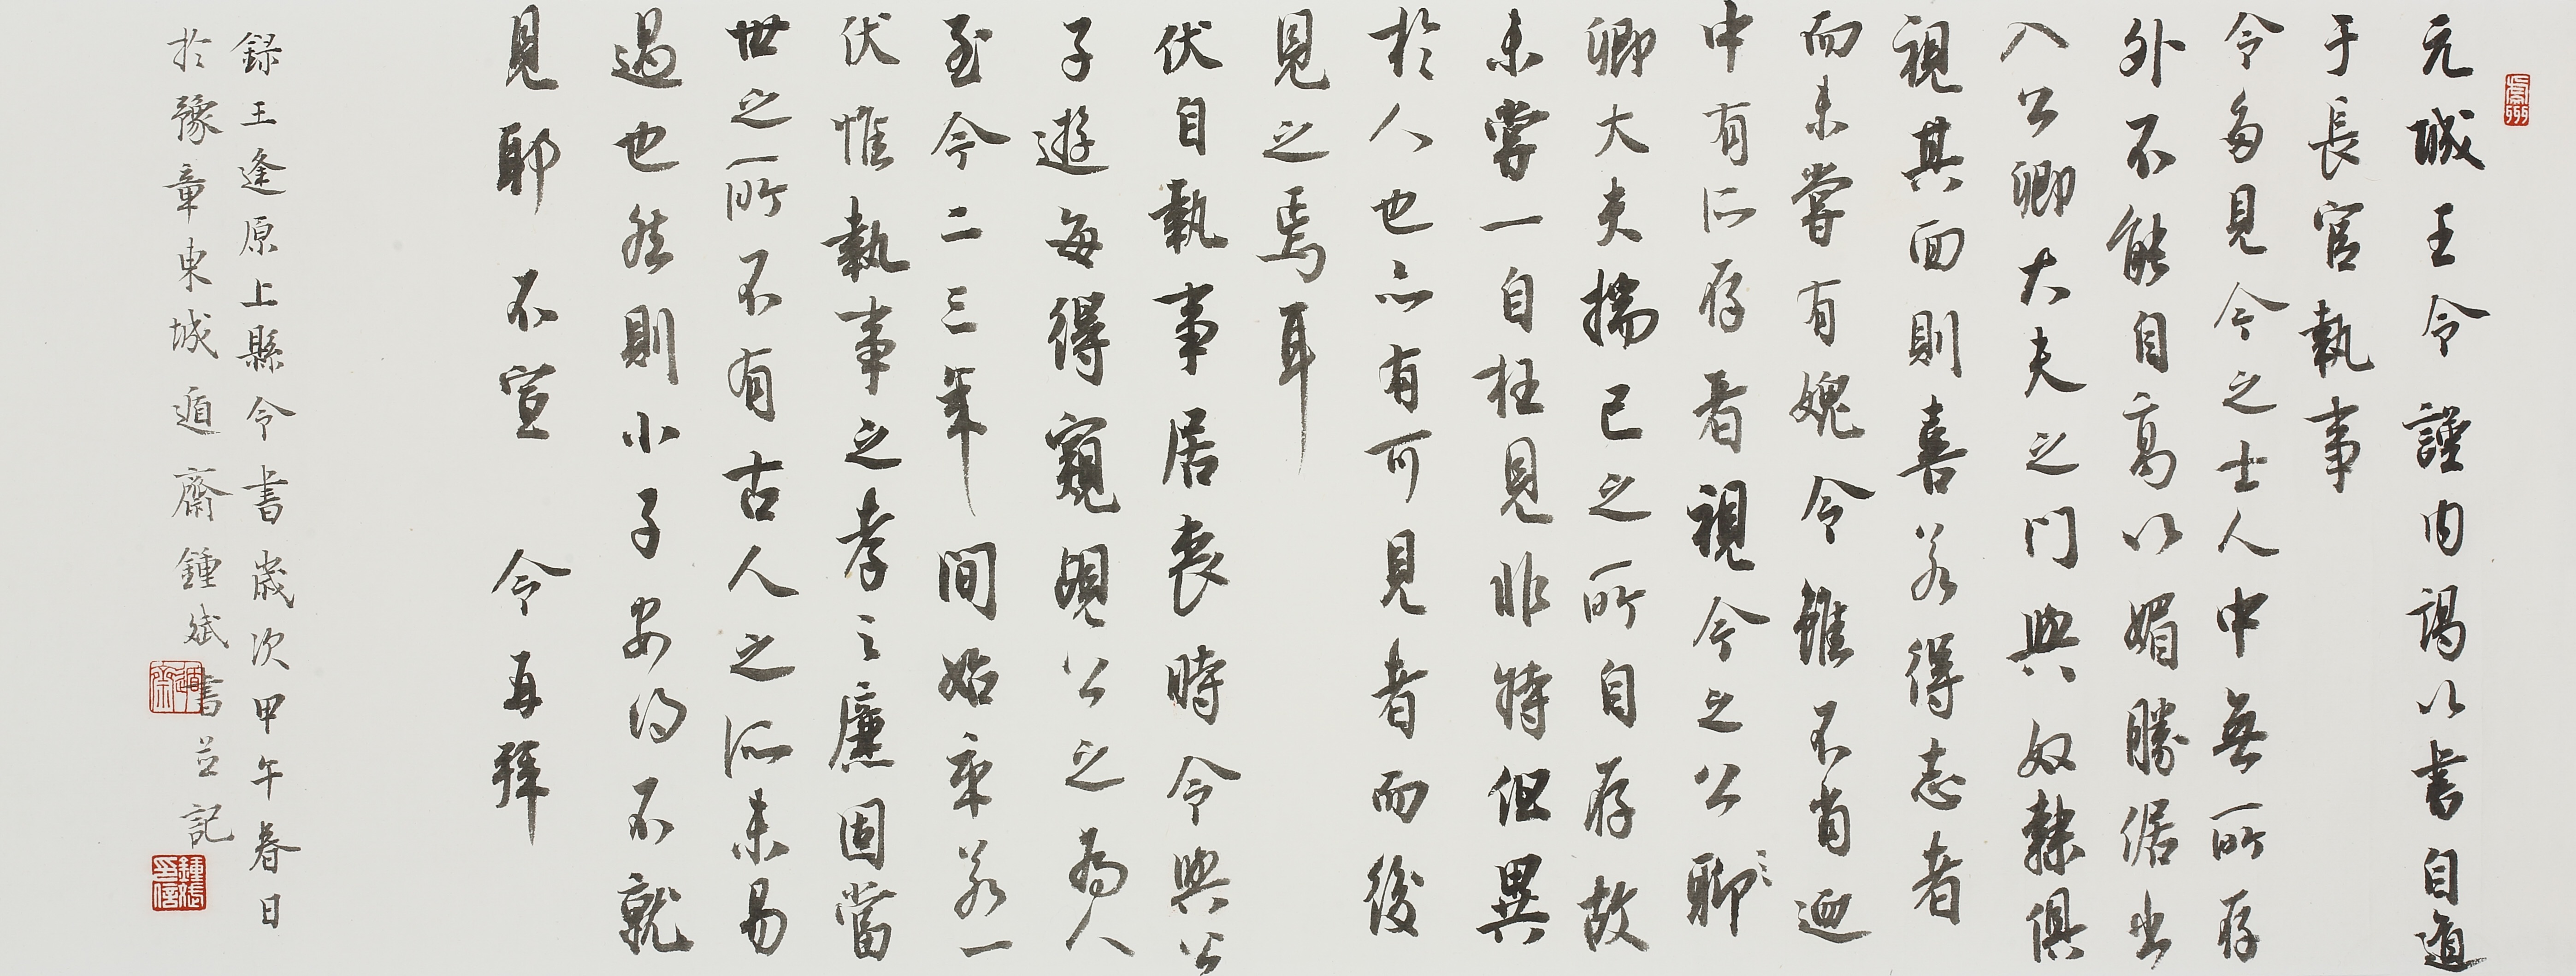 元城王令謹內謁以書自道
于長官執事
令每見今之士人中無所存
外不能自高以媚勝倨出
入公卿大夫之門與奴隸俱
視其面則喜若得志者
而未嘗有媿令雖不肖迺
中有所存者視今之公聊
卿大夫揣己之所自存故
未嘗一自枉見非特但異
於人也亦有可見者而後
見之焉耳
伏自執事居喪時令與公
子遊每得窺覘公之為人
至今二三年間始卒若一
伏惟執事之孝之廉固當
世之所不有古人之所未易
過也然則小子安得不就
見耶 不宣 令再拜
錄王逢原上縣令書歲次甲午春日
於豫章東城遁齋鍾斌書並記
遁齋